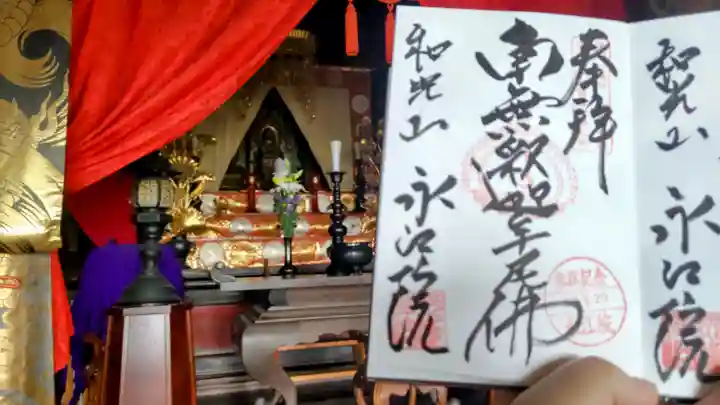 奉拝
南無釈迦牟尼佛
和光山
永江院
和光山
永江院